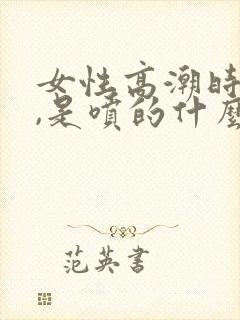 女性高潮时
,是喷的什麼
范英書